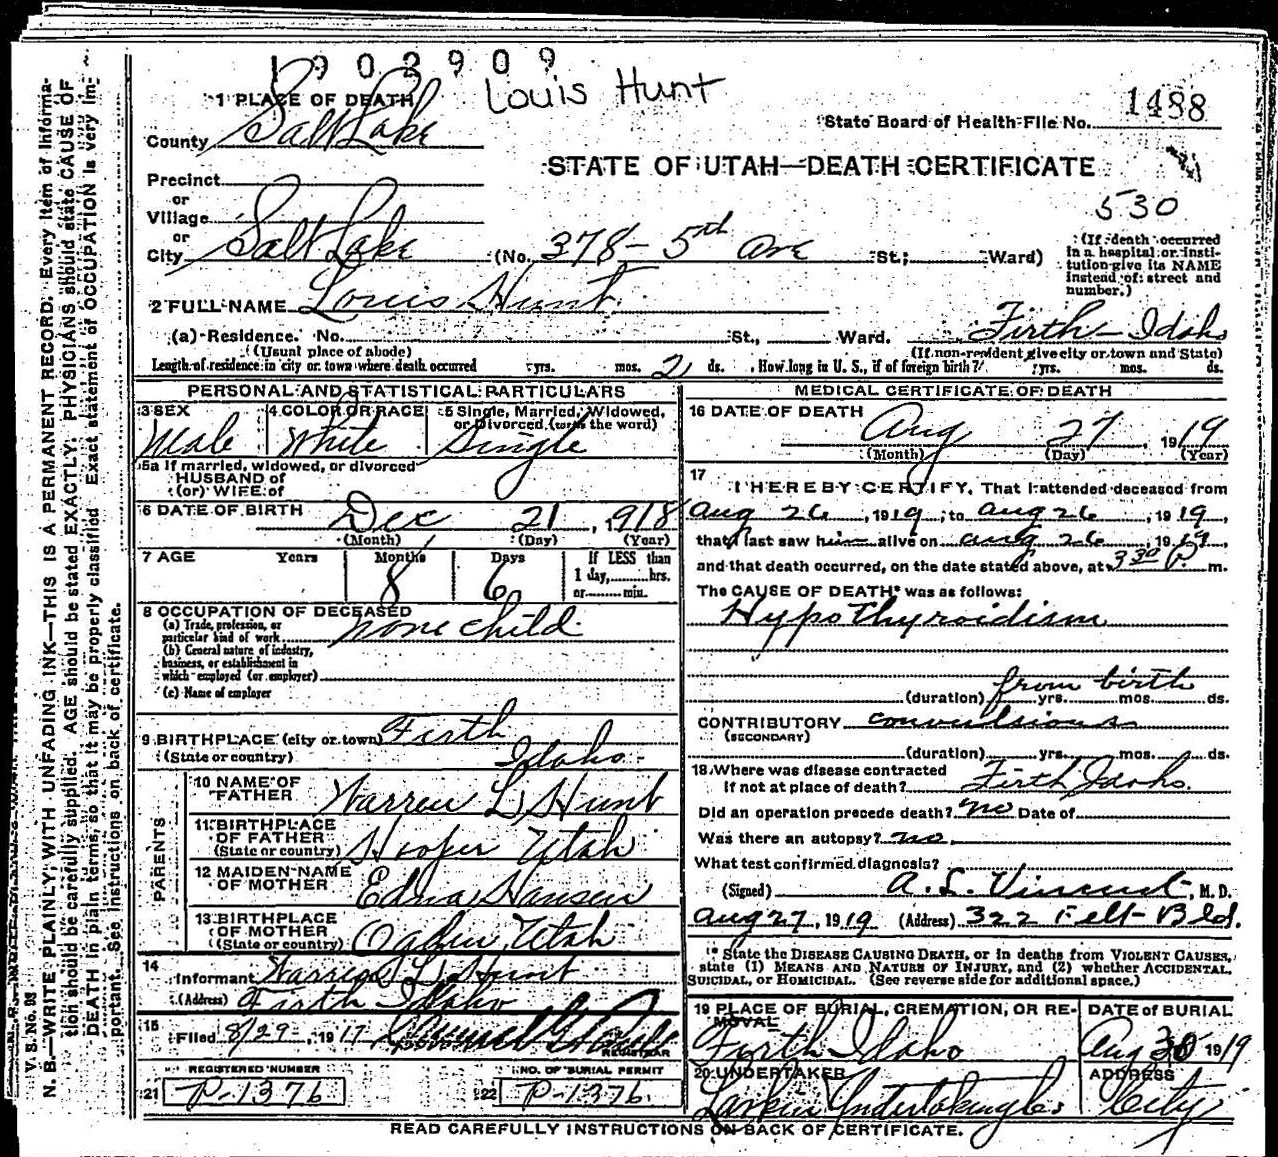 1902909
Louis Hunt
1 PLACE OF DEATH
State Board of Health-File No. 1488
County Salt Lake
STATE OF UTAH—DEATH CERTIFICATE
Precinct
or
Village
or
530
City Salt Lake (No. 378- 5th Ave St.; Ward)
(If death occurred in a hospital or institution give its NAME instead of street and number.)
2 FULL NAME Louis Hunt
(a) Residence. No. St., Ward. Firth- Idaho
(Usual place of abode) (If non-resident give city or town and State)
Length of residence in city or town where death occurred yrs. mos. 2 ds. How long in U. S., if of foreign birth? yrs. mos. ds.
PERSONAL AND STATISTICAL PARTICULARS
3 SEX Male
4 COLOR OR RACE White
5 Single, Married, Widowed, or Divorced (write the word) Single
5a If married, widowed, or divorced
HUSBAND of
(or) WIFE of
6 DATE OF BIRTH Dec 21, 1918
(Month) (Day) (Year)
7 AGE Years Months 8 Days 6 If LESS than 1 day, hrs. or min.
8 OCCUPATION OF DECEASED
(a) Trade, profession, or particular kind of work none child
(b) General nature of industry, business, or establishment in which employed (or employer)
(c) Name of employer
9 BIRTHPLACE (city or town) Firth
(State or country) Idaho
PARENTS
10 NAME OF FATHER Warren L Hunt
11 BIRTHPLACE OF FATHER (State or country) Hooper Utah
12 MAIDEN NAME OF MOTHER Edna Hansen
13 BIRTHPLACE OF MOTHER (State or country) Ogden, Utah
14 Informant Warren L Hunt
(Address) Firth Idaho
15 Filed 8/29, 1917
REGISTRAR
REGISTERED NUMBER
21 P-1376
NO. OF BURIAL PERMIT
22 P-1376
MEDICAL CERTIFICATE OF DEATH
16 DATE OF DEATH Aug 27, 1919
(Month) (Day) (Year)
17 I HEREBY CERTIFY, That I attended deceased from
Aug 26, 1919, to Aug 26, 1919,
that I last saw him alive on Aug 26, 1919,
and that death occurred, on the date stated above, at 3 30 P. m.
The CAUSE OF DEATH* was as follows:
Hypothyroidism
(duration) from birth yrs. mos. ds.
CONTRIBUTORY convulsions
(SECONDARY)
(duration) yrs. mos. ds.
18 Where was disease contracted
if not at place of death? Firth Idaho.
Did an operation precede death? no Date of
Was there an autopsy? no.
What test confirmed diagnosis?
(Signed) A. L. Vincent, M. D.
Aug 27, 1919 (Address) 322 Felt Bld.
* State the DISEASE CAUSING DEATH, or in deaths from VIOLENT CAUSES,
state (1) MEANS AND NATURE OF INJURY, and (2) whether ACCIDENTAL,
SUICIDAL, or HOMICIDAL. (See reverse side for additional space.)
19 PLACE OF BURIAL, CREMATION, OR REMOVAL Firth Idaho
DATE of BURIAL Aug 30 1919
20 UNDERTAKER Larkin Undertaking Co.
ADDRESS City
READ CAREFULLY INSTRUCTIONS ON BACK OF CERTIFICATE.
V. S. No. 98
N. B.—WRITE PLAINLY, WITH UNFADING INK—THIS IS A PERMANENT RECORD. Every item of informa-
tion should be carefully supplied. AGE should be stated EXACTLY. PHYSICIANS should state CAUSE OF
DEATH in plain terms, so that it may be properly classified. Exact statement of OCCUPATION is very im-
portant. See instructions on back of certificate.